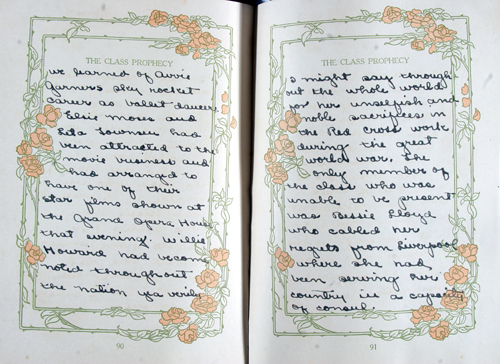 THE CLASS PROPHECY
we learned of Avvie
Garners sky rocket
carer as ballet dancer.
Elsie Moses and
Lula Townsen had
been attracted to the
movie business and
had arranged to
have one of their
star films shown at
the Grand Opera House
that evening. Willie
Howard had become
noted throughout
the nation yea verily
90
THE CLASS PROPHECY
I might say through
out the whole world
for her unselfish and
noble sacrifices in
the Red Cross work
during the great
world war. The
only member of
the class who was
unable to be present
was Bessie Lloyd
who cabled her
regrets from Liverpool
where she had
been serving her
country in a capacity
of consul.
91